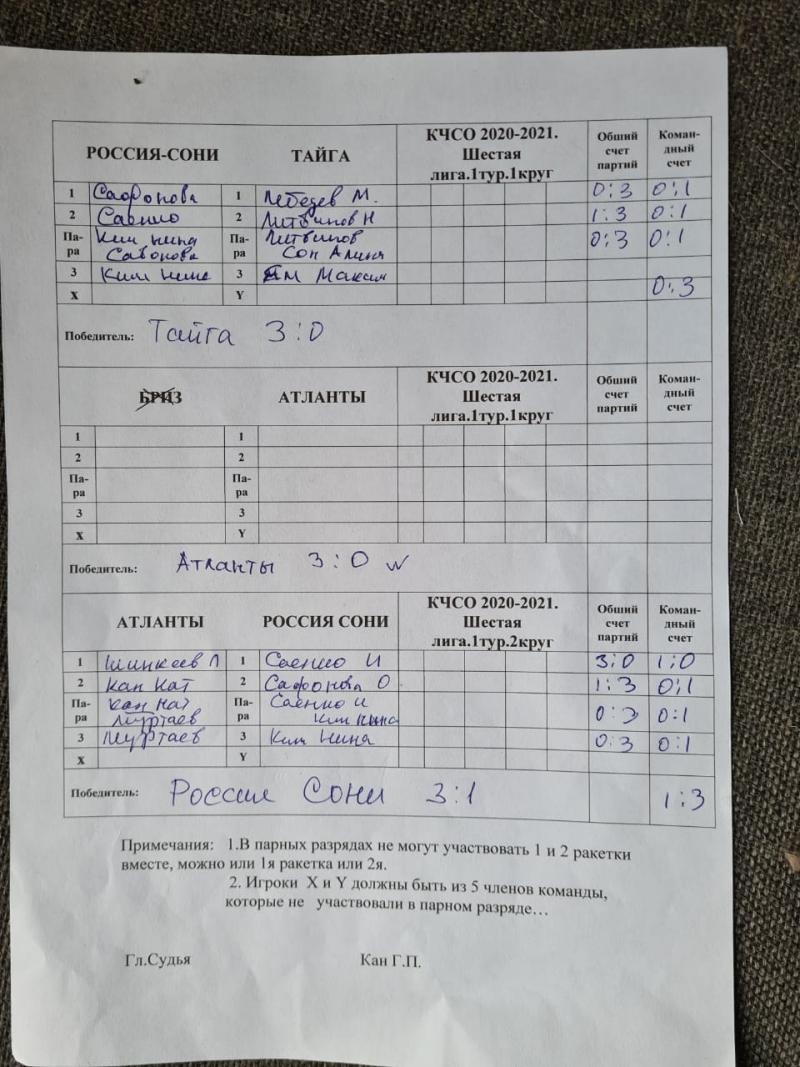 РОССИЯ-СОНИ ТАЙГА КЧСО 2020-2021. Шестая лига.1тур.1круг Общий счет партий Коман-дный счет
1 Сафонова 1 Лебедев М. 0:3 0:1
2 Саенко 2 Литвинов Н 1:3 0:1
Па-ра Ким Нина Сафонова Па-ра Литвинов Сон Алина 0:3 0:1
3 Ким Нина 3 Ям Максим
X Y 0:3
Победитель: Тайга 3:0
БРИЗ АТЛАНТЫ КЧСО 2020-2021. Шестая лига.1тур.1круг Общий счет партий Коман-дный счет
1 1
2 2
Па-ра Па-ра
3 3
X Y
Победитель: Атланты 3:0 w
АТЛАНТЫ РОССИЯ СОНИ КЧСО 2020-2021. Шестая лига.1тур.2круг Общий счет партий Коман-дный счет
1 Шинкеев Л 1 Саенко И 3:0 1:0
2 Кан Кат 2 Сафонова О 1:3 0:1
Па-ра Кан Кат Муртаев Па-ра Саенко И Ким Нина 0:3 0:1
3 Муртаев 3 Ким Нина 0:3 0:1
X Y
Победитель: Россия Сони 3:1 1:3
Примечания: 1.В парных разрядах не могут участвовать 1 и 2 ракетки
вместе, можно или 1я ракетка или 2я.
2. Игроки X и Y должны быть из 5 членов команды,
которые не участвовали в парном разряде…
Гл.Судья Кан Г.П.